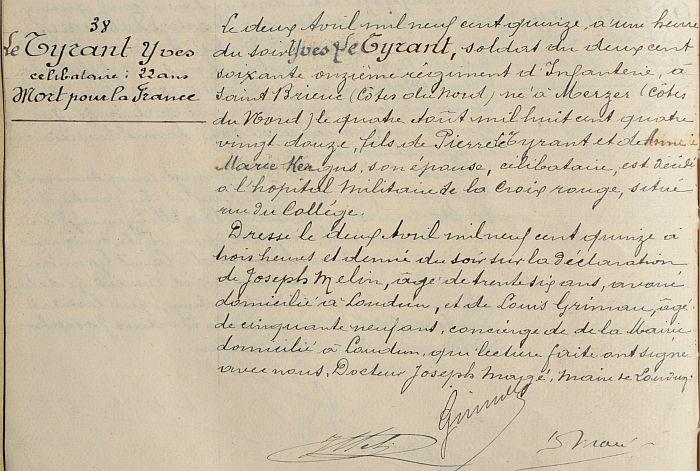 38
Le Tyrant Yves
célibataire: 22 ans
Mort pour la France
Le deux Avril mil neuf cent quinze, à une heure
du soir Yves Le Tyrant, soldat du deux cent
soixante onzième régiment d'Infanterie, à
Saint Brieuc (Côtes du Nord) né à Merzer (Côtes
du Nord) le quatre août mil huit cent quatre
vingt douze, fils de Pierre Le Tyrant et de Anne
Marie, son épouse, célibataire, est décédé
à l'hôpital militaire de la Croix rouge, situé
rue du Collège.
Dressé le deux Avril mil neuf cent quinze à
trois heures et demie du soir sur la déclaration
de Joseph Melin, âgé de trente six ans, avoué
domicilié à Loudun, et de Louis Grimau, âgé
de cinquante neuf ans, concierge de de la Mairie
domicilié à Loudun, qui lecture faite ont signé
avec nous, Docteur Joseph Magé, Maire de Loudun